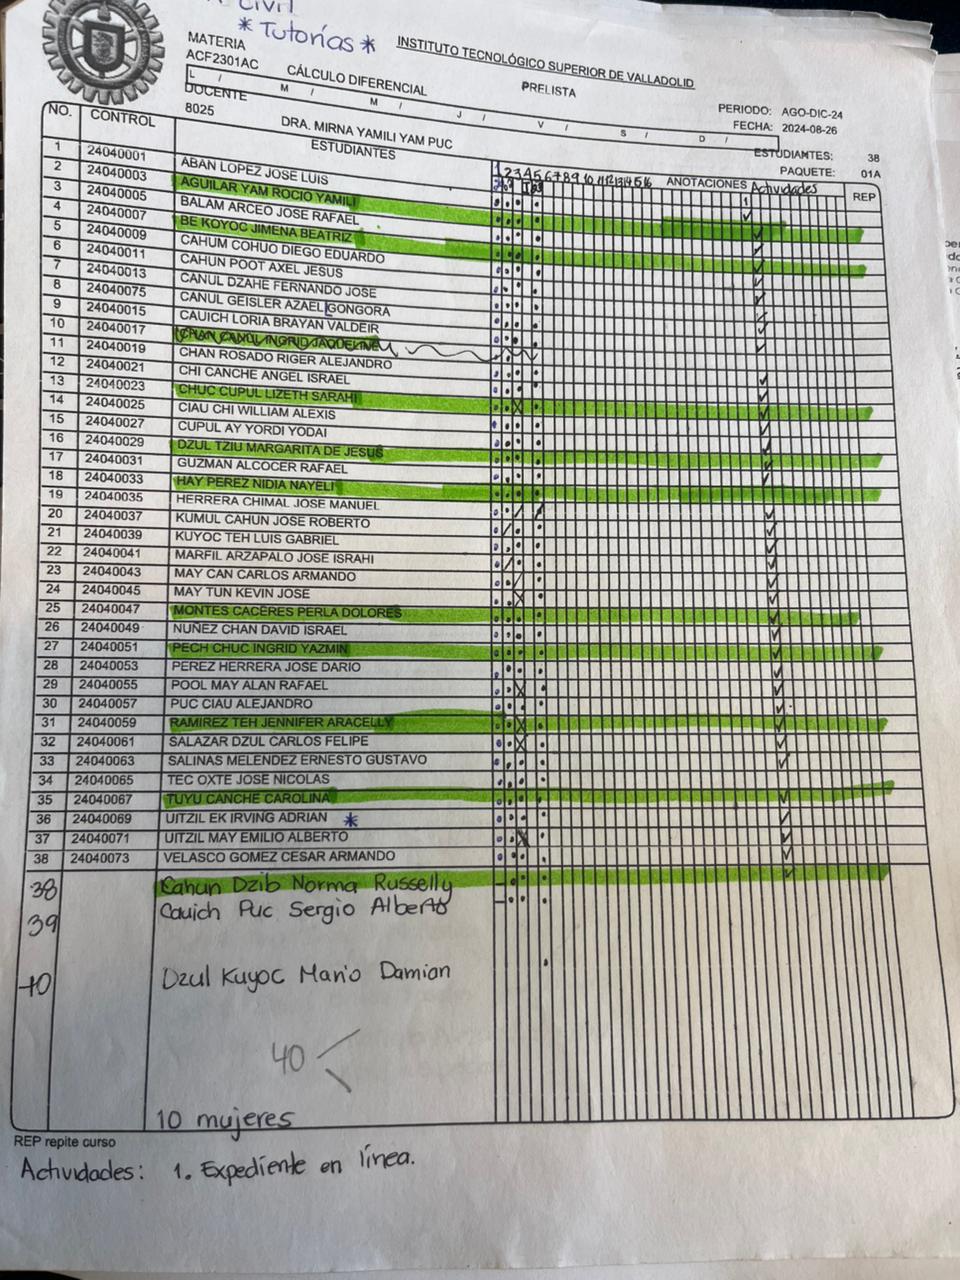 Civil
* Tutorías *
INSTITUTO TECNOLÓGICO SUPERIOR DE VALLADOLID
MATERIA
ACF2301AC CÁLCULO DIFERENCIAL PRELISTA
L / M / M / J / V / S / D /
PERIODO: AGO-DIC-24
FECHA: 2024-08-26
DOCENTE
8025 DRA. MIRNA YAMILI YAM PUC
ESTUDIANTES: 38
PAQUETE: 01A
NO. CONTROL ESTUDIANTES 1 2 3 4 5 6 7 8 9 10 11 12 13 14 15 16 ANOTACIONES Actividades REP
1
1 24040001 ABAN LOPEZ JOSE LUIS
2 24040003 AGUILAR YAM ROCIO YAMILI
3 24040005 BALAM ARCEO JOSE RAFAEL
4 24040007 BE KOYOC JIMENA BEATRIZ
5 24040009 CAHUM COHUO DIEGO EDUARDO
6 24040011 CAHUN POOT AXEL JESUS
7 24040013 CANUL DZAHE FERNANDO JOSE
8 24040075 CANUL GEISLER AZAEL GONGORA
9 24040015 CAUICH LORIA BRAYAN VALDEIR
10 24040017 INGRID JAQUELINE
11 24040019 CHAN ROSADO RIGER ALEJANDRO
12 24040021 CHI CANCHE ANGEL ISRAEL
13 24040023 CHUC CUPUL LIZETH SARAHI
14 24040025 CIAU CHI WILLIAM ALEXIS
15 24040027 CUPUL AY YORDI YODAI
16 24040029 DZUL TZIU MARGARITA DE JESUS
17 24040031 GUZMAN ALCOCER RAFAEL
18 24040033 HAY PEREZ NIDIA NAYELI
19 24040035 HERRERA CHIMAL JOSE MANUEL
20 24040037 KUMUL CAHUN JOSE ROBERTO
21 24040039 KUYOC TEH LUIS GABRIEL
22 24040041 MARFIL ARZAPALO JOSE ISRAHI
23 24040043 MAY CAN CARLOS ARMANDO
24 24040045 MAY TUN KEVIN JOSE
25 24040047 MONTES CACERES PERLA DOLORES
26 24040049 NUÑEZ CHAN DAVID ISRAEL
27 24040051 PECH CHUC INGRID YAZMIN
28 24040053 PEREZ HERRERA JOSE DARIO
29 24040055 POOL MAY ALAN RAFAEL
30 24040057 PUC CIAU ALEJANDRO
31 24040059 RAMIREZ TEH JENNIFER ARACELLY
32 24040061 SALAZAR DZUL CARLOS FELIPE
33 24040063 SALINAS MELENDEZ ERNESTO GUSTAVO
34 24040065 TEC OXTE JOSE NICOLAS
35 24040067 TUYU CANCHE CAROLINA
36 24040069 UITZIL EK IRVING ADRIAN *
37 24040071 UITZIL MAY EMILIO ALBERTO
38 24040073 VELASCO GOMEZ CESAR ARMANDO
38 Cahun Dzib Norma Russelly
39 Cauich Puc Sergio Alberto
40 Dzul Kuyoc Mario Damian
40
10 mujeres
REP repite curso
Actividades: 1. Expediente en línea.